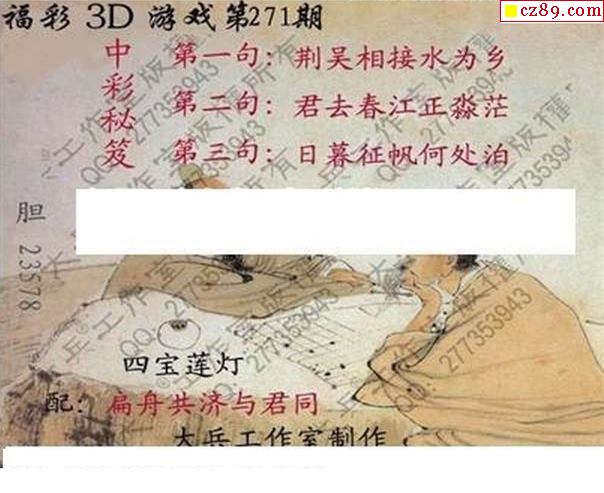 cz89.com
福彩 3D 游戏第271期
中彩秘笈
第一句：荆吴相接水为乡
第二句：君去春江正淼茫
第三句：日暮征帆何处泊
胆 23578
四宝莲灯
配：扁舟共济与君同
大兵工作室制作
大兵工作室版權所有
QQ：277353943